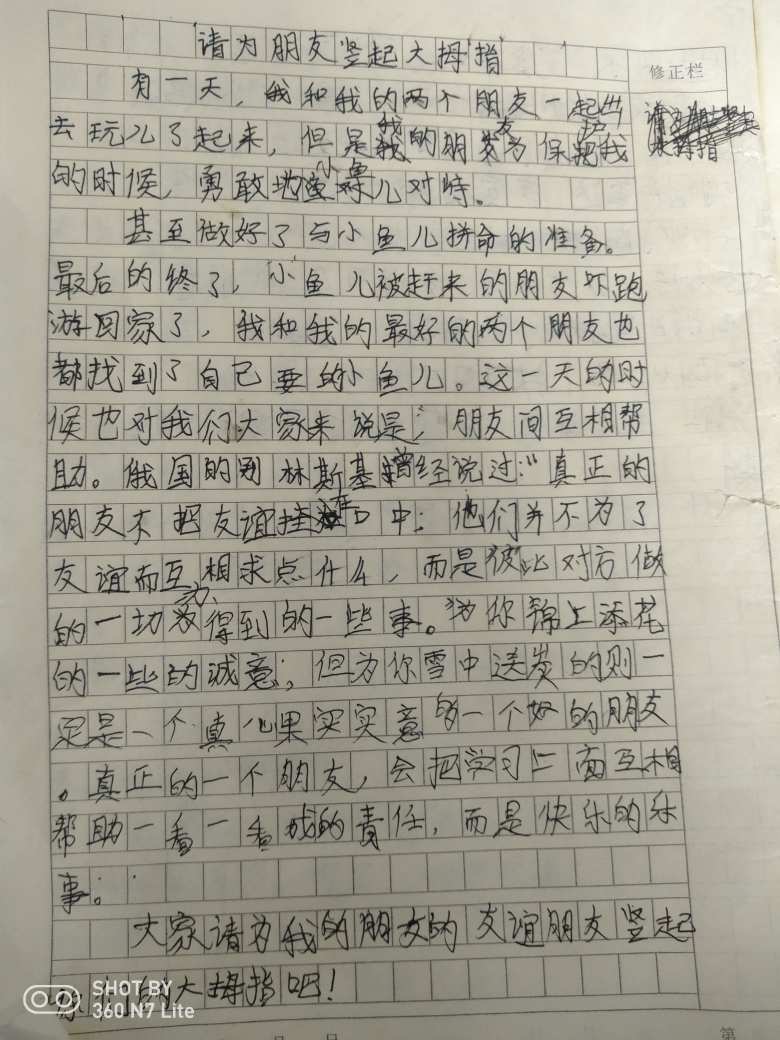 请为朋友竖起大拇指
修正栏
有一天，我和我的两个朋友一起出
去玩儿了起来，但是我的朋友为保护我
的时候，勇敢地小鱼儿对峙。
甚至做好了与小鱼儿拼命的准备。
最后的终了，小鱼儿被赶来的朋友吓跑
游回家了，我和我的最好的两个朋友也
都找到了自己要的小鱼儿。这一天的时
候也对我们大家来说是；朋友间互相帮
助。俄国的别林斯基曾经说过："真正的
朋友不把友谊挂在口中；他们并不为了
友谊而互相求点什么，而是彼此对方做
的一切为、得到的一些事。"为你锦上添花
的一些的诚意；但为你雪中送炭的则一
定是一个真儿果实实意的一个好的朋友
。真正的一个朋友，会把学习上面互相
帮助一看一看成的责任，而是快乐的乐
事；
大家请为我的朋友的友谊朋友竖起
你们的大拇指吧！
SHOT BY
360 N7 Lite
第